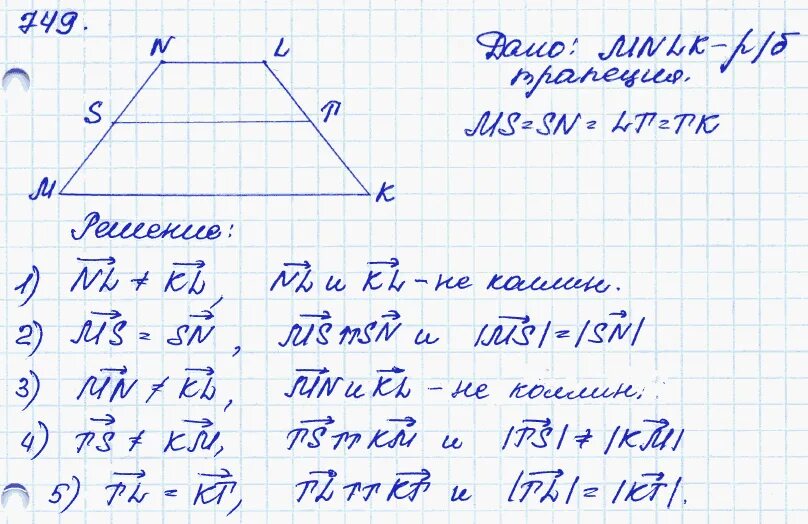 749.
N L
S T
M K
Дано: MNLK – р/б
трапеция.
MS = SN = LT = TK
Решение:
1) NL ≠ KL, NL и KL – не коллин.
2) MS = SN, MS ↑↑ SN и |MS| = |SN|
3) MN ≠ KL, MN и KL – не коллин.
4) TS ≠ KM, TS ↑↑ KM и |TS| ≠ |KM|
5) TL = KT, TL ↑↑ KT и |TL| = |KT|.